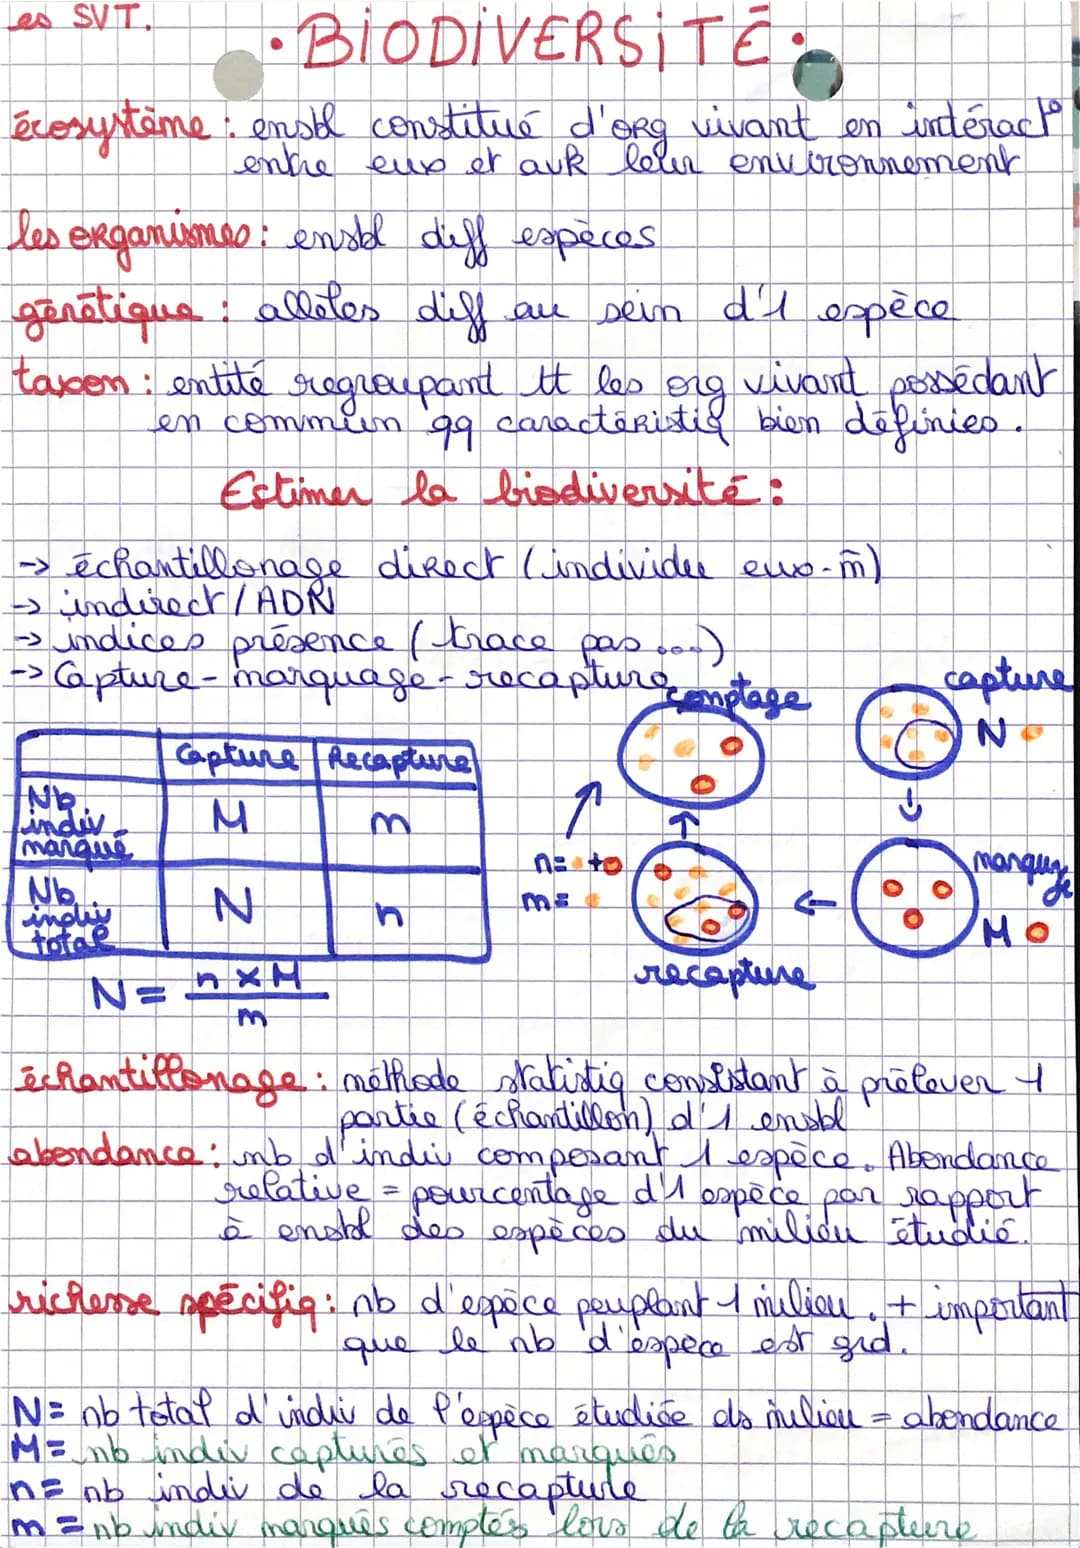 es SVT.
• BIODIVERSITÉ •
écosystème : ensbl constitué d'org vivant en intéract°
entre eux et avk leur environnement
les organismes : ensbl diff espèces
génétique : allèles diff au sein d'1 espèce
taxon : entité regroupant tt les org vivant possédant
en commun qq caractéristiq bien définies.
Estimer la biodiversité :
-> échantillonage direct (individu eux-m̄)
-> indirect / ADN
-> indices présence (trace pas ...)
-> Capture - marquage - recapture
comptage
capture
N
Capture Recapture
Nb indiv marqué M m
Nb indiv total N n
n = +
m =
marquage
M
recapture
N = n x M
m
échantillonage : méthode statistiq consistant à prélever 1
partie (échantillon) d'1 ensbl
abondance : nb d'indiv composant 1 espèce. Abondance
relative = pourcentage d'1 espèce par rapport
à ensbl des espèces du milieu étudié.
richesse spécifiq : nb d'espèce peuplant 1 milieu. + important
que le nb d'espèce est grd.
N = nb total d'indiv de l'espèce étudiée ds milieu = abondance
M = nb indiv capturés et marqués
n = nb indiv de la recapture
m = nb indiv marqués comptés lors de la recapture